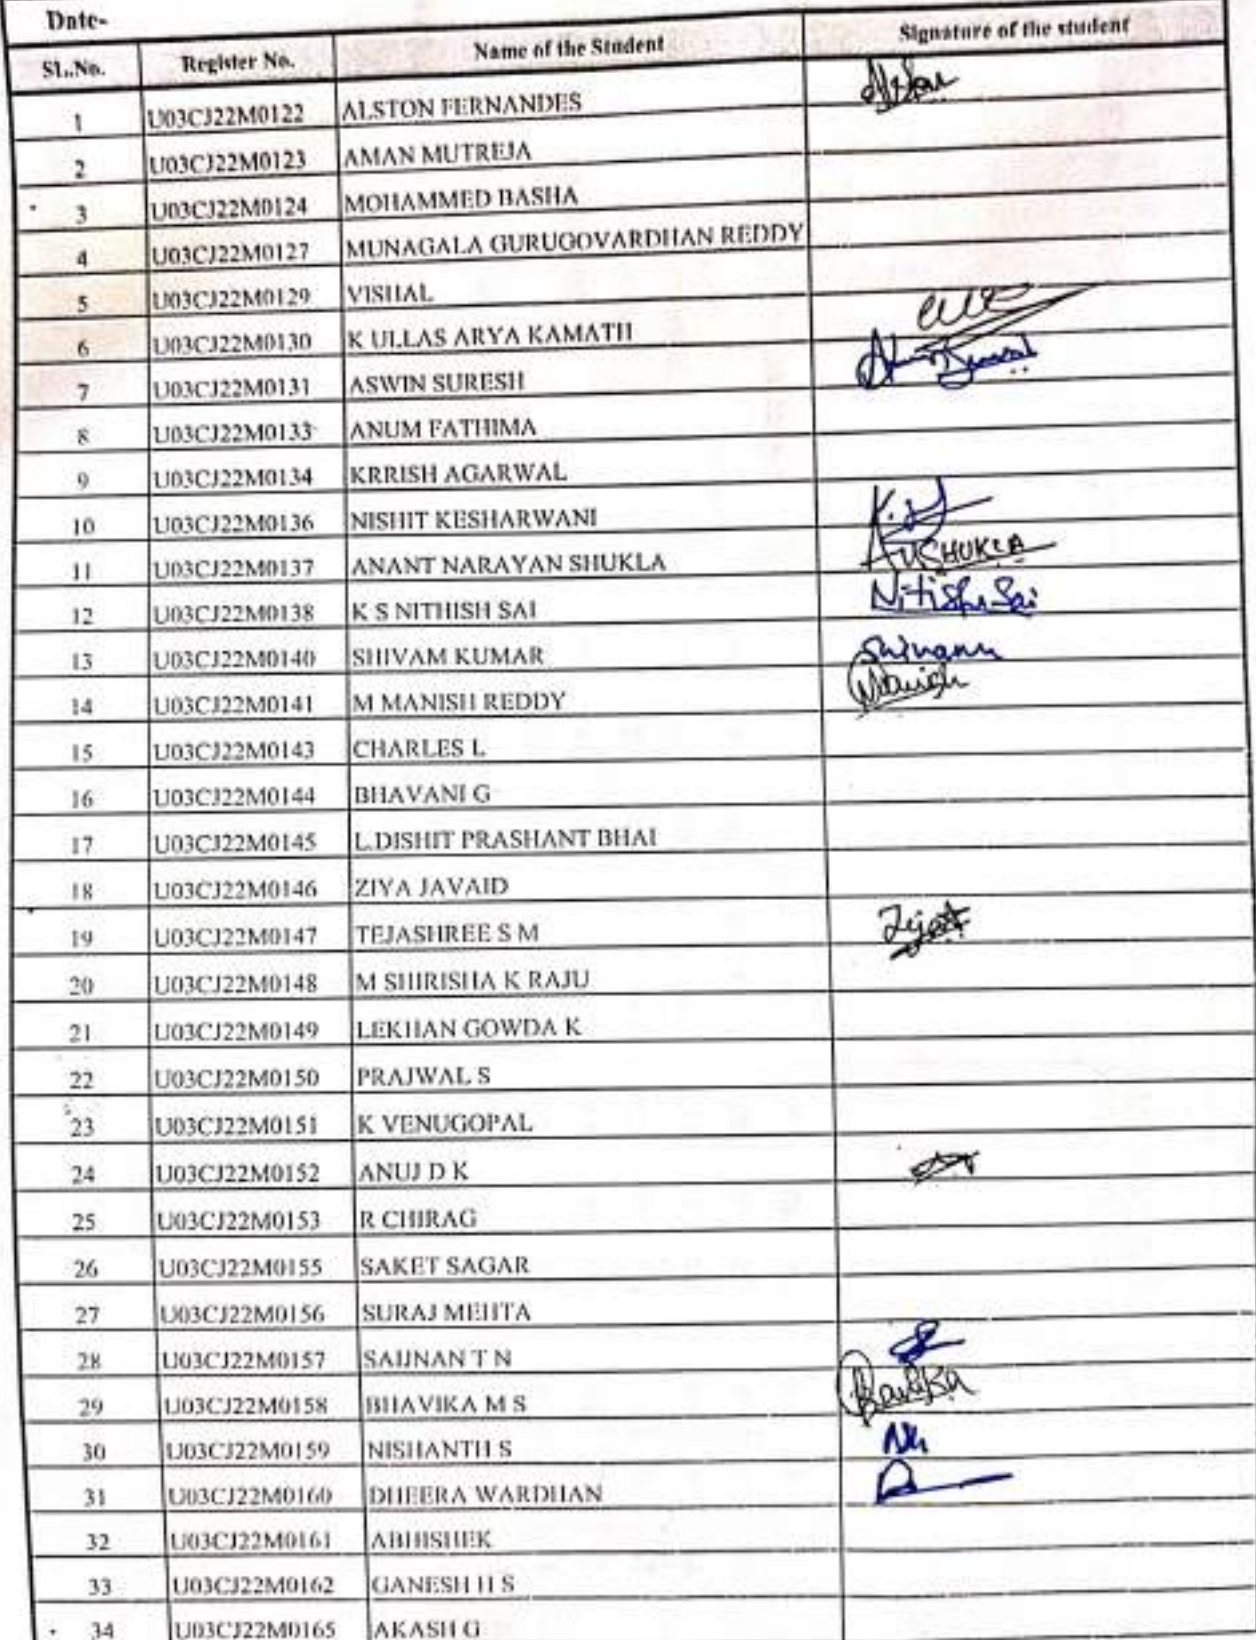 Date-
SL.No. Register No. Name of the Student Signature of the student
1 U03CJ22M0122 ALSTON FERNANDES Alston
2 U03CJ22M0123 AMAN MUTREJA
3 U03CJ22M0124 MOHAMMED BASHA
4 U03CJ22M0127 MUNAGALA GURUGOVARDHAN REDDY
5 U03CJ22M0129 VISHAL
6 U03CJ22M0130 K ULLAS ARYA KAMATH
7 U03CJ22M0131 ASWIN SURESH
8 U03CJ22M0133 ANUM FATHIMA
9 U03CJ22M0134 KRRISH AGARWAL
10 U03CJ22M0136 NISHIT KESHARWANI
11 U03CJ22M0137 ANANT NARAYAN SHUKLA SHUKLA
12 U03CJ22M0138 K S NITHISH SAI Nitish Sai
13 U03CJ22M0140 SHIVAM KUMAR Shivam
14 U03CJ22M0141 M MANISH REDDY Manish
15 U03CJ22M0143 CHARLES L
16 U03CJ22M0144 BHAVANI G
17 U03CJ22M0145 L.DISHIT PRASHANT BHAI
18 U03CJ22M0146 ZIYA JAVAID
19 U03CJ22M0147 TEJASHREE S M
20 U03CJ22M0148 M SHIRISHA K RAJU
21 U03CJ22M0149 LEKHAN GOWDA K
22 U03CJ22M0150 PRAJWAL S
23 U03CJ22M0151 K VENUGOPAL
24 U03CJ22M0152 ANUJ D K
25 U03CJ22M0153 R CHIRAG
26 U03CJ22M0155 SAKET SAGAR
27 U03CJ22M0156 SURAJ MEHTA
28 U03CJ22M0157 SAIJNAN T N
29 U03CJ22M0158 BHAVIKA M S Bavika
30 U03CJ22M0159 NISHANTH S
31 U03CJ22M0160 DHEERA WARDHAN
32 U03CJ22M0161 ABHISHEK
33 U03CJ22M0162 GANESH H S
34 U03CJ22M0165 AKASH G